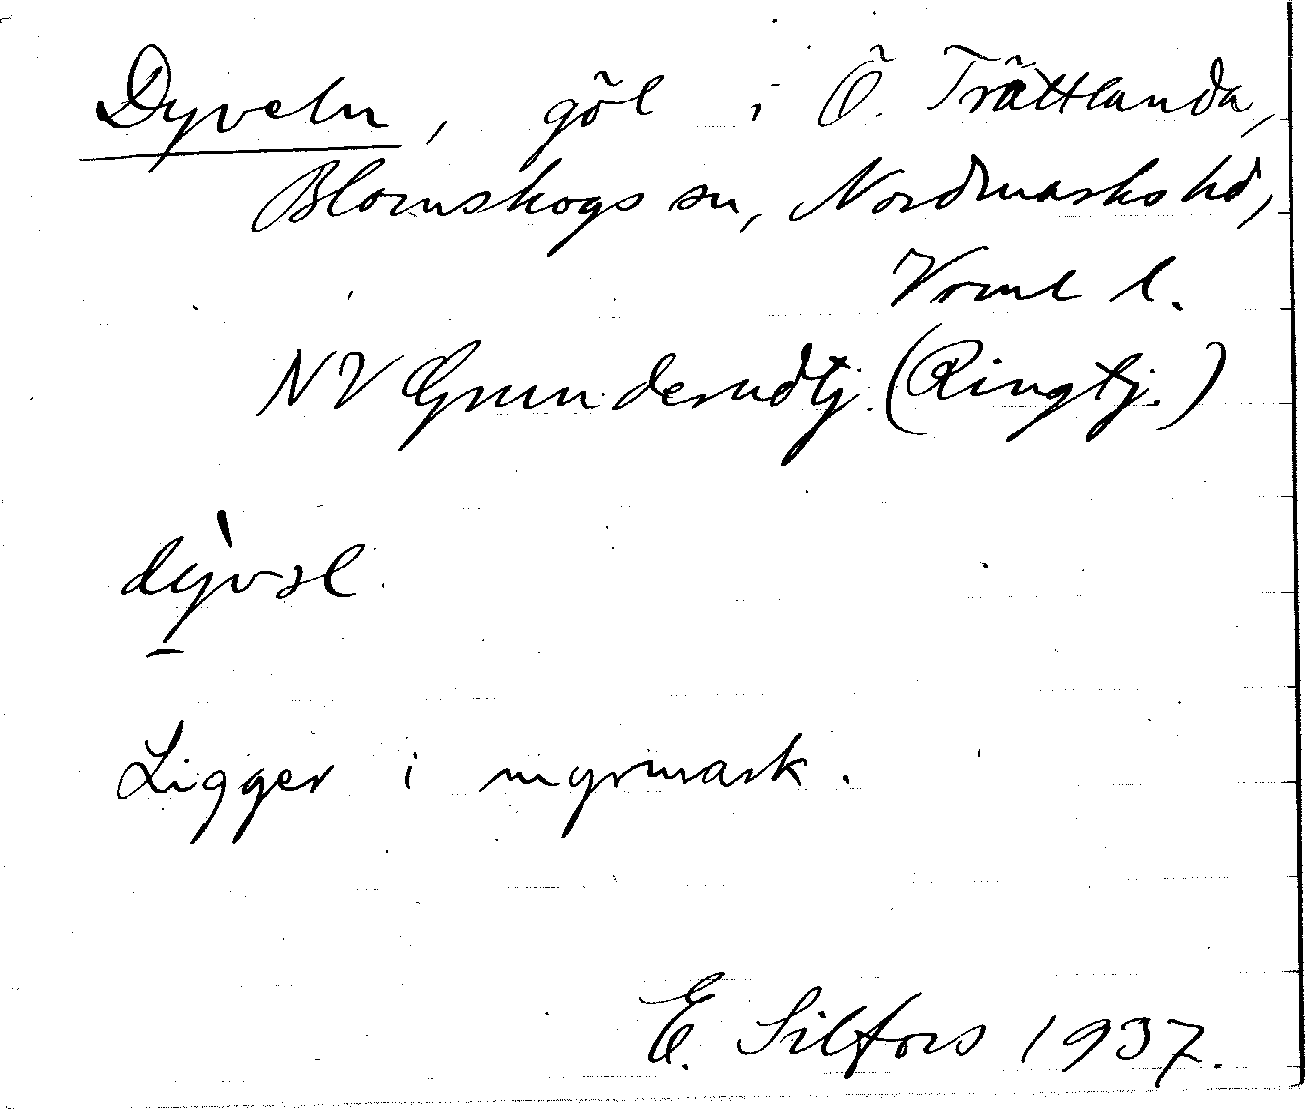 Dyveln, göl i Ö. Trättlanda,
Blomskogs sn, Nordmarks hd,
Vrml l.
NV Grunderudtj. (Ringtj.)
dỳvəl
Ligger i myrmark.
E. Silfors 1937.